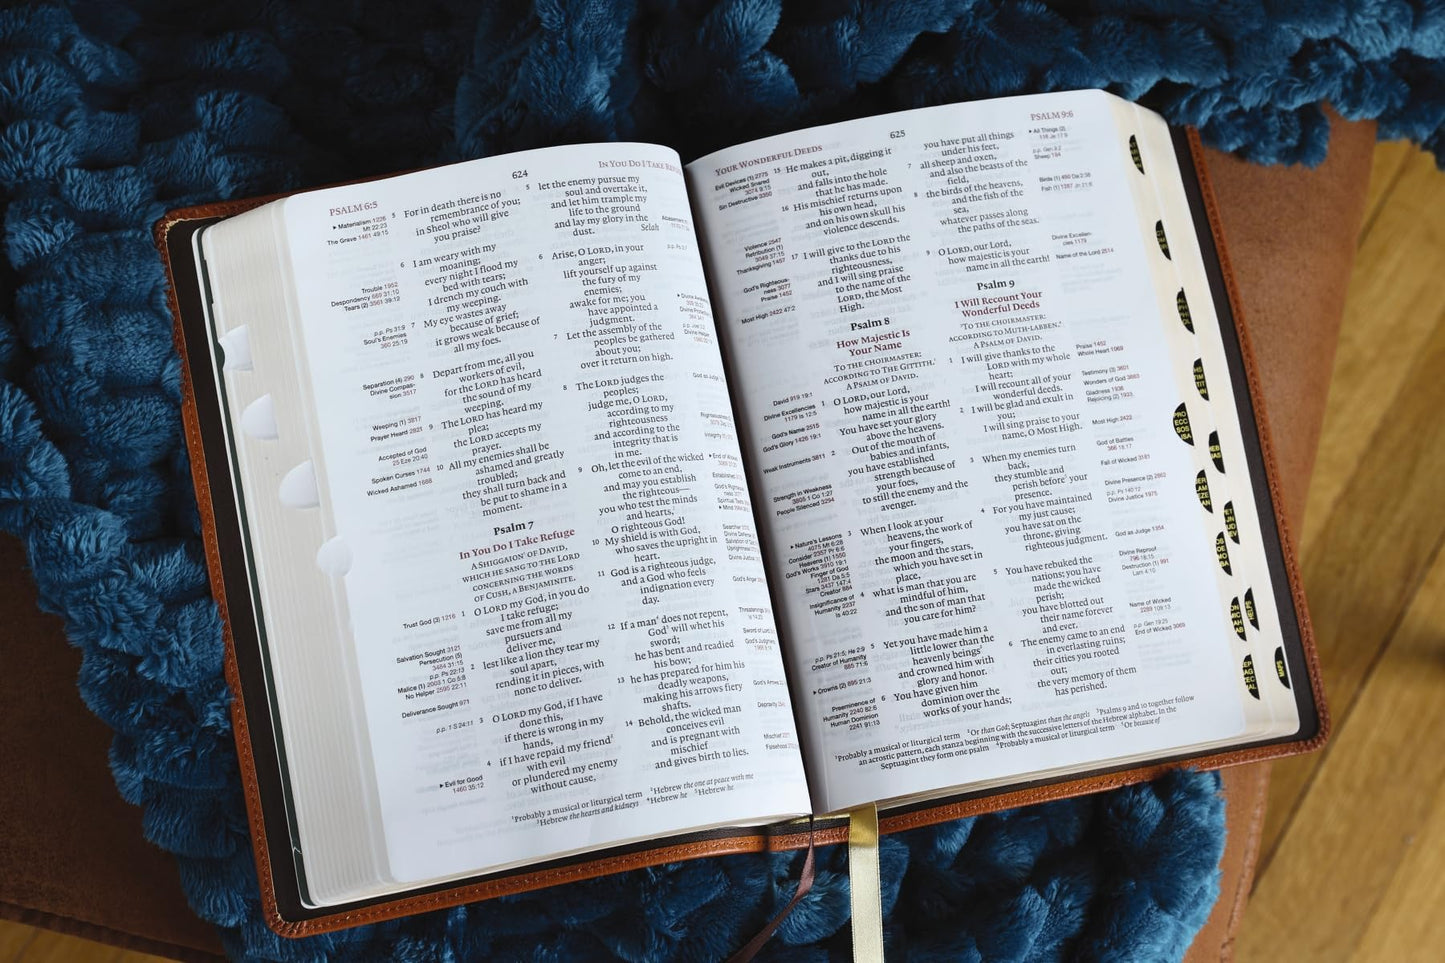 624
PSALM 6:5
IN YOU DO I TAKE
5 For in death there is no
remembrance of you;
in Sheol who will give
you praise?
6 I am weary with my
moaning;
every night I flood my
bed with tears;
I drench my couch with
my weeping.
7 My eye wastes away
because of grief;
it grows weak because of
all my foes.
8 Depart from me, all you
workers of evil,
for the LORD has heard
the sound of my
weeping.
9 The LORD has heard my
plea;
the LORD accepts my
prayer.
10 All my enemies shall be
ashamed and greatly
troubled;
they shall turn back and
be put to shame in a
moment.
Psalm 7
In You Do I Take Refuge
A SHIGGAION¹ OF DAVID,
WHICH HE SANG TO THE LORD
CONCERNING THE WORDS
OF CUSH, A BENJAMINITE.
1 O LORD my God, in you do
I take refuge;
save me from all my
pursuers and
deliver me,
2 lest like a lion they tear my
soul apart,
rending it in pieces, with
none to deliver.
3 O LORD my God, if I have
done this,
if there is wrong in my
hands,
4 if I have repaid my friend²
with evil
or plundered my enemy
without cause,
5 let the enemy pursue my
soul and overtake it,
and let him trample my
life to the ground
and lay my glory in the
dust. Selah
6 Arise, O LORD, in your
anger;
lift yourself up against
the fury of my
enemies;
awake for me; you
have appointed a
judgment.
7 Let the assembly of the
peoples be gathered
about you;
over it return on high.
8 The LORD judges the
peoples;
judge me, O LORD,
according to my
righteousness
and according to the
integrity that is
in me.
9 Oh, let the evil of the wicked
come to an end,
and may you establish
the righteous—
you who test the minds
and hearts,³
O righteous God!
10 My shield is with God,
who saves the upright in
heart.
11 God is a righteous judge,
and a God who feels
indignation every
day.
12 If a man⁴ does not repent,
God⁵ will whet his
sword;
he has bent and readied
his bow;
13 he has prepared for him his
deadly weapons,
making his arrows fiery
shafts.
14 Behold, the wicked man
conceives evil
and is pregnant with
mischief
and gives birth to lies.
▸ Materialism 1226
Mt 22:23
The Grave 1461 49:15
Trouble 1952
Despondency 669 31:10
Tears (2) 3561 39:12
p.p. Ps 31:9
Soul's Enemies
360 25:19
Separation (4) 290
Divine Compas-
sion 3517
Weeping (1) 3817
Prayer Heard 2821
Accepted of God
25 Eze 20:40
Spoken Curses 1744
Wicked Ashamed 1688
Trust God (3) 1216
Salvation Sought 3121
Persecution (5)
3484 31:15
p.p. Ps 22:13
Malice (1) 2003 1 Co 5:8
No Helper 2595 22:11
Deliverance Sought 971
p.p. 1 S 24:11
▸ Evil for Good
1460 35:12
God as Judge
▸ End of Wicked
God's Anger
Sword of Lord
God's Arrows
Depravity
Mischief
Falsehood
¹Probably a musical or liturgical term ²Hebrew the one at peace with me
³Hebrew the hearts and kidneys ⁴Hebrew he ⁵Hebrew he
625
YOUR WONDERFUL DEEDS
PSALM 9:6
15 He makes a pit, digging it
out,
and falls into the hole
that he has made.
16 His mischief returns upon
his own head,
and on his own skull his
violence descends.
17 I will give to the LORD the
thanks due to his
righteousness,
and I will sing praise
to the name of the
LORD, the Most
High.
Psalm 8
How Majestic Is
Your Name
TO THE CHOIRMASTER:
ACCORDING TO THE GITTITH.¹
A PSALM OF DAVID.
1 O LORD, our Lord,
how majestic is your
name in all the earth!
You have set your glory
above the heavens.
2 Out of the mouth of
babies and infants,
you have established
strength because of
your foes,
to still the enemy and the
avenger.
3 When I look at your
heavens, the work of
your fingers,
the moon and the stars,
which you have set in
place,
4 what is man that you are
mindful of him,
and the son of man that
you care for him?
5 Yet you have made him a
little lower than the
heavenly beings²
and crowned him with
glory and honor.
6 You have given him
dominion over the
works of your hands;
you have put all things
under his feet,
7 all sheep and oxen,
and also the beasts of the
field,
8 the birds of the heavens,
and the fish of the
sea,
whatever passes along
the paths of the seas.
9 O LORD, our Lord,
how majestic is your
name in all the earth!
Psalm 9
I Will Recount Your
Wonderful Deeds
³TO THE CHOIRMASTER:
ACCORDING TO MUTH-LABBEN.⁴
A PSALM OF DAVID.
1 I will give thanks to the
LORD with my whole
heart;
I will recount all of your
wonderful deeds.
2 I will be glad and exult in
you;
I will sing praise to your
name, O Most High.
3 When my enemies turn
back,
they stumble and
perish before⁵ your
presence.
4 For you have maintained
my just cause;
you have sat on the
throne, giving
righteous judgment.
5 You have rebuked the
nations; you have
made the wicked
perish;
you have blotted out
their name forever
and ever.
6 The enemy came to an end
in everlasting ruins;
their cities you rooted
out;
the very memory of them
has perished.
Evil Devices (1) 2775
Wicked Snared
3074 9:15
Sin Destructive 3350
Violence 2547
Retribution (1)
3049 37:15
Thanksgiving 1457
God's Righteous-
ness 3077
Praise 1452
Most High 2422 47:2
David 919 19:1
Divine Excellencies
1179 Is 12:5
God's Name 2515
God's Glory 1426 19:1
Weak Instruments 3811
Strength in Weakness
3805 1 Co 1:27
People Silenced 3294
▸ Nature's Lessons
4075 Mt 6:28
Consider 2357 Pr 6:6
Heavens (1) 1550
God's Works 3910 19:1
Finger of God
1281 Da 5:5
Stars 3437 147:4
Creator 884
Insignificance of
Humanity 2237
Is 40:22
p.p. Ps 21:5; He 2:9
Creator of Humanity
885 71:6
▸ Crowns (2) 895 21:3
Preeminence of
Humanity 2240 82:6
Human Dominion
2241 91:13
▸ All Things (2)
116 Je 17:9
p.p. Gen 3:2
Sheep 184
Birds (1) 490 Da 2:38
Fish (1) 1287 Jn 21:6
Divine Excellen-
cies 1179
Name of the Lord 2514
Praise 1452
Whole Heart 1069
Testimony (3) 3601
Wonders of God 3983
Gladness 1936
Rejoicing (2) 1933
Most High 2422
God of Battles
366 18:17
Fall of Wicked 3181
Divine Presence (2) 2862
p.p. Ps 140:12
Divine Justice 1975
God as Judge 1354
Divine Reproof
796 18:15
Destruction (1) 991
Lam 4:10
Name of Wicked
2289 109:13
p.p. Gen 19:25
End of Wicked 3069
¹Probably a musical or liturgical term ²Or than God; Septuagint than the angels ³Psalms 9 and 10 together follow
an acrostic pattern, each stanza beginning with the successive letters of the Hebrew alphabet. In the
Septuagint they form one psalm ⁴Probably a musical or liturgical term ⁵Or because of
HELPS
MAPS